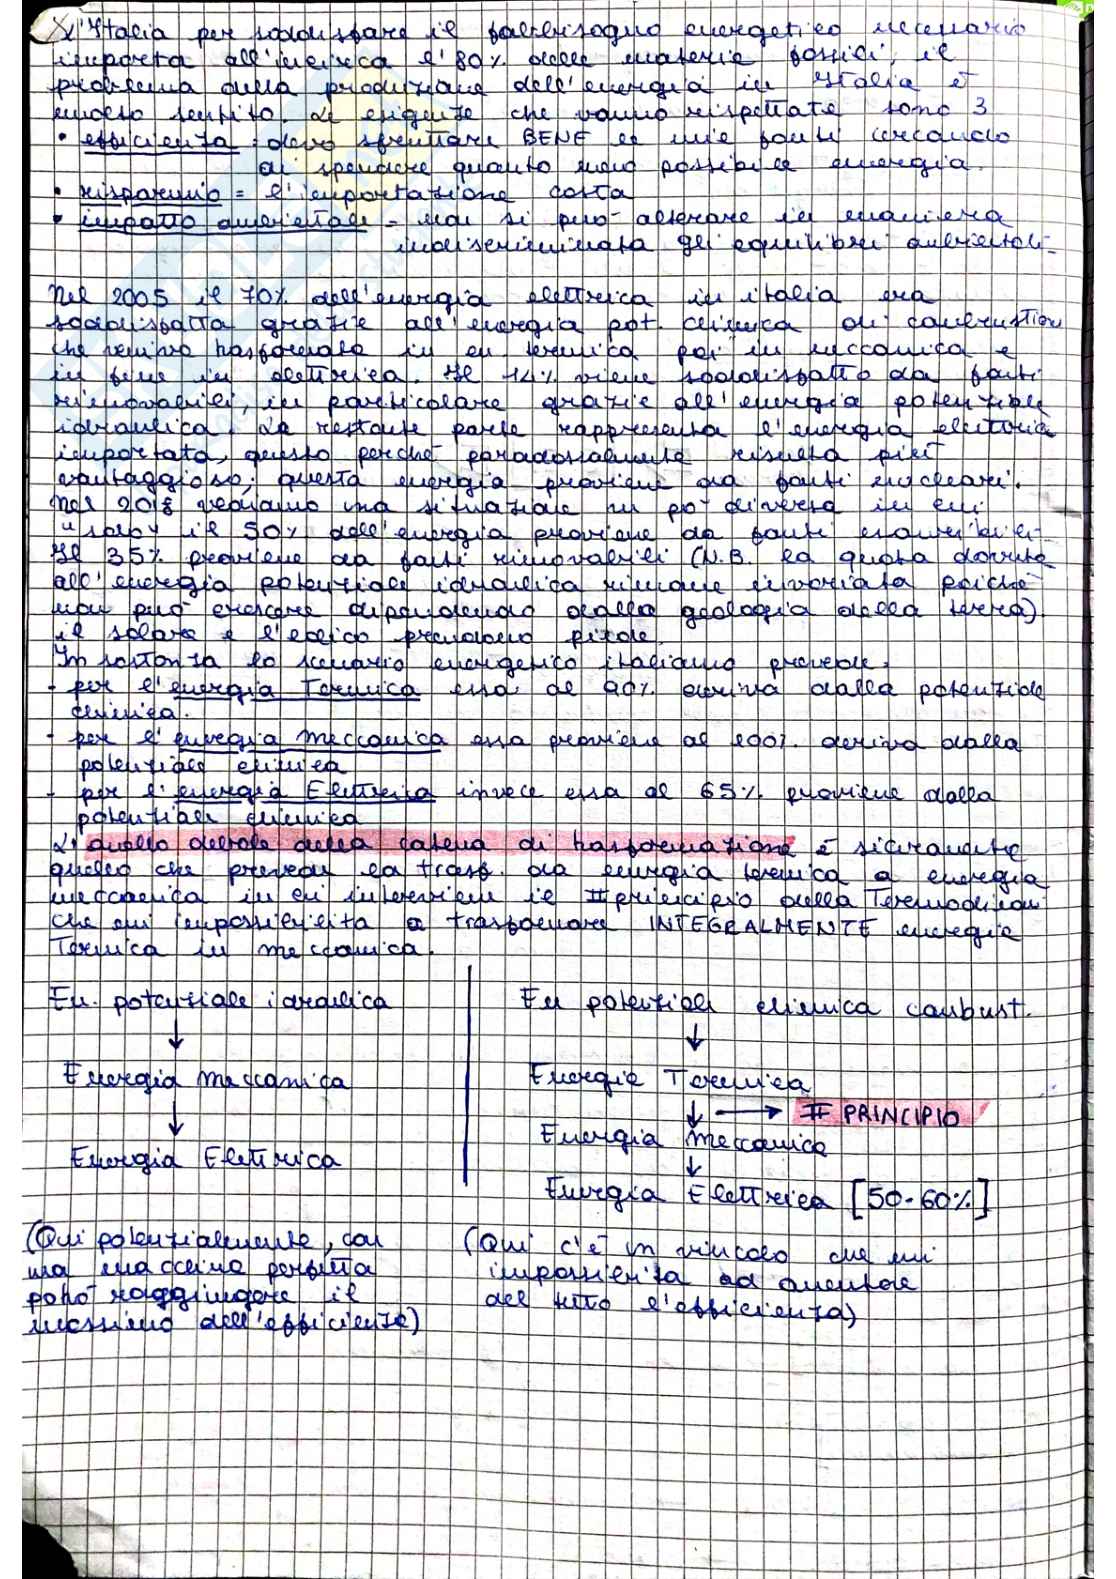 L'Italia per soddisfare il fabbisogno energetico necessario
importa all'incirca l'80% delle materie fossili, il
problema della produzione dell'energia in Italia è
molto sentito. Le esigenze che vanno rispettate sono 3
• efficienza: devo sfruttare BENE le mie fonti cercando
di spendere quanto meno possibile energia.
• risparmio = l'importazione costa
• impatto ambientale = non si può alterare in maniera
indiscriminata gli equilibri ambientali.
Nel 2005 il 70% dell'energia elettrica in italia era
soddisfatta grazie all'energia pot. chimica di combustion
che veniva trasformata in en termica poi in meccanica e
in fine in elettrica. Il 14% viene soddisfatto da fonti
rinnovabili, in particolare grazie all'energia potenziale
idraulica. La restante parte rappresenta l'energia elettrica
importata, questo perché paradossalmente risulta più
vantaggioso; questa energia proviene da fonti nucleari.
Nel 2018 vediamo una situazione un po' diversa in cui
"solo" il 50% dell'energia proviene da fonti esauribili.
Il 35% proviene da fonti rinnovabili (N.B. la quota dovuta
all'energia potenziale idraulica rimane invariata poiché
non può crescere dipendendo dalla geologia della terra).
il solare e l'eolico prendono piede.
In sostanza lo scenario energetico italiano prevede:
- per l'energia Termica essa al 90% arriva dalla potenziale
chimica.
- per l'energia meccanica essa proviene al 100% deriva dalla
potenziale chimica
- per l'energia Elettrica invece essa al 65% proviene dalla
potenziale chimica
L'anello debole della catena di trasformazione è sicuramente
quello che prevede la trasf. da energia termica a energia
meccanica in cui interviene il II principio della Termodinam
che mi impossibilita a trasformare INTEGRALMENTE energia
Termica in meccanica.
En. potenziale idraulica
↓
Energia meccanica
↓
Energia Elettrica
(Qui potenzialmente, con
una macchina perfetta
potrò raggiungere il
massimo dell'efficienza)
En potenziale chimica combust.
↓
Energia Termica
↓ → II PRINCIPIO
Energia meccanica
↓
Energia Elettrica [50-60%]
(Qui c'è un vincolo che mi
impossibilita ad aumentare
del tutto l'efficienza)